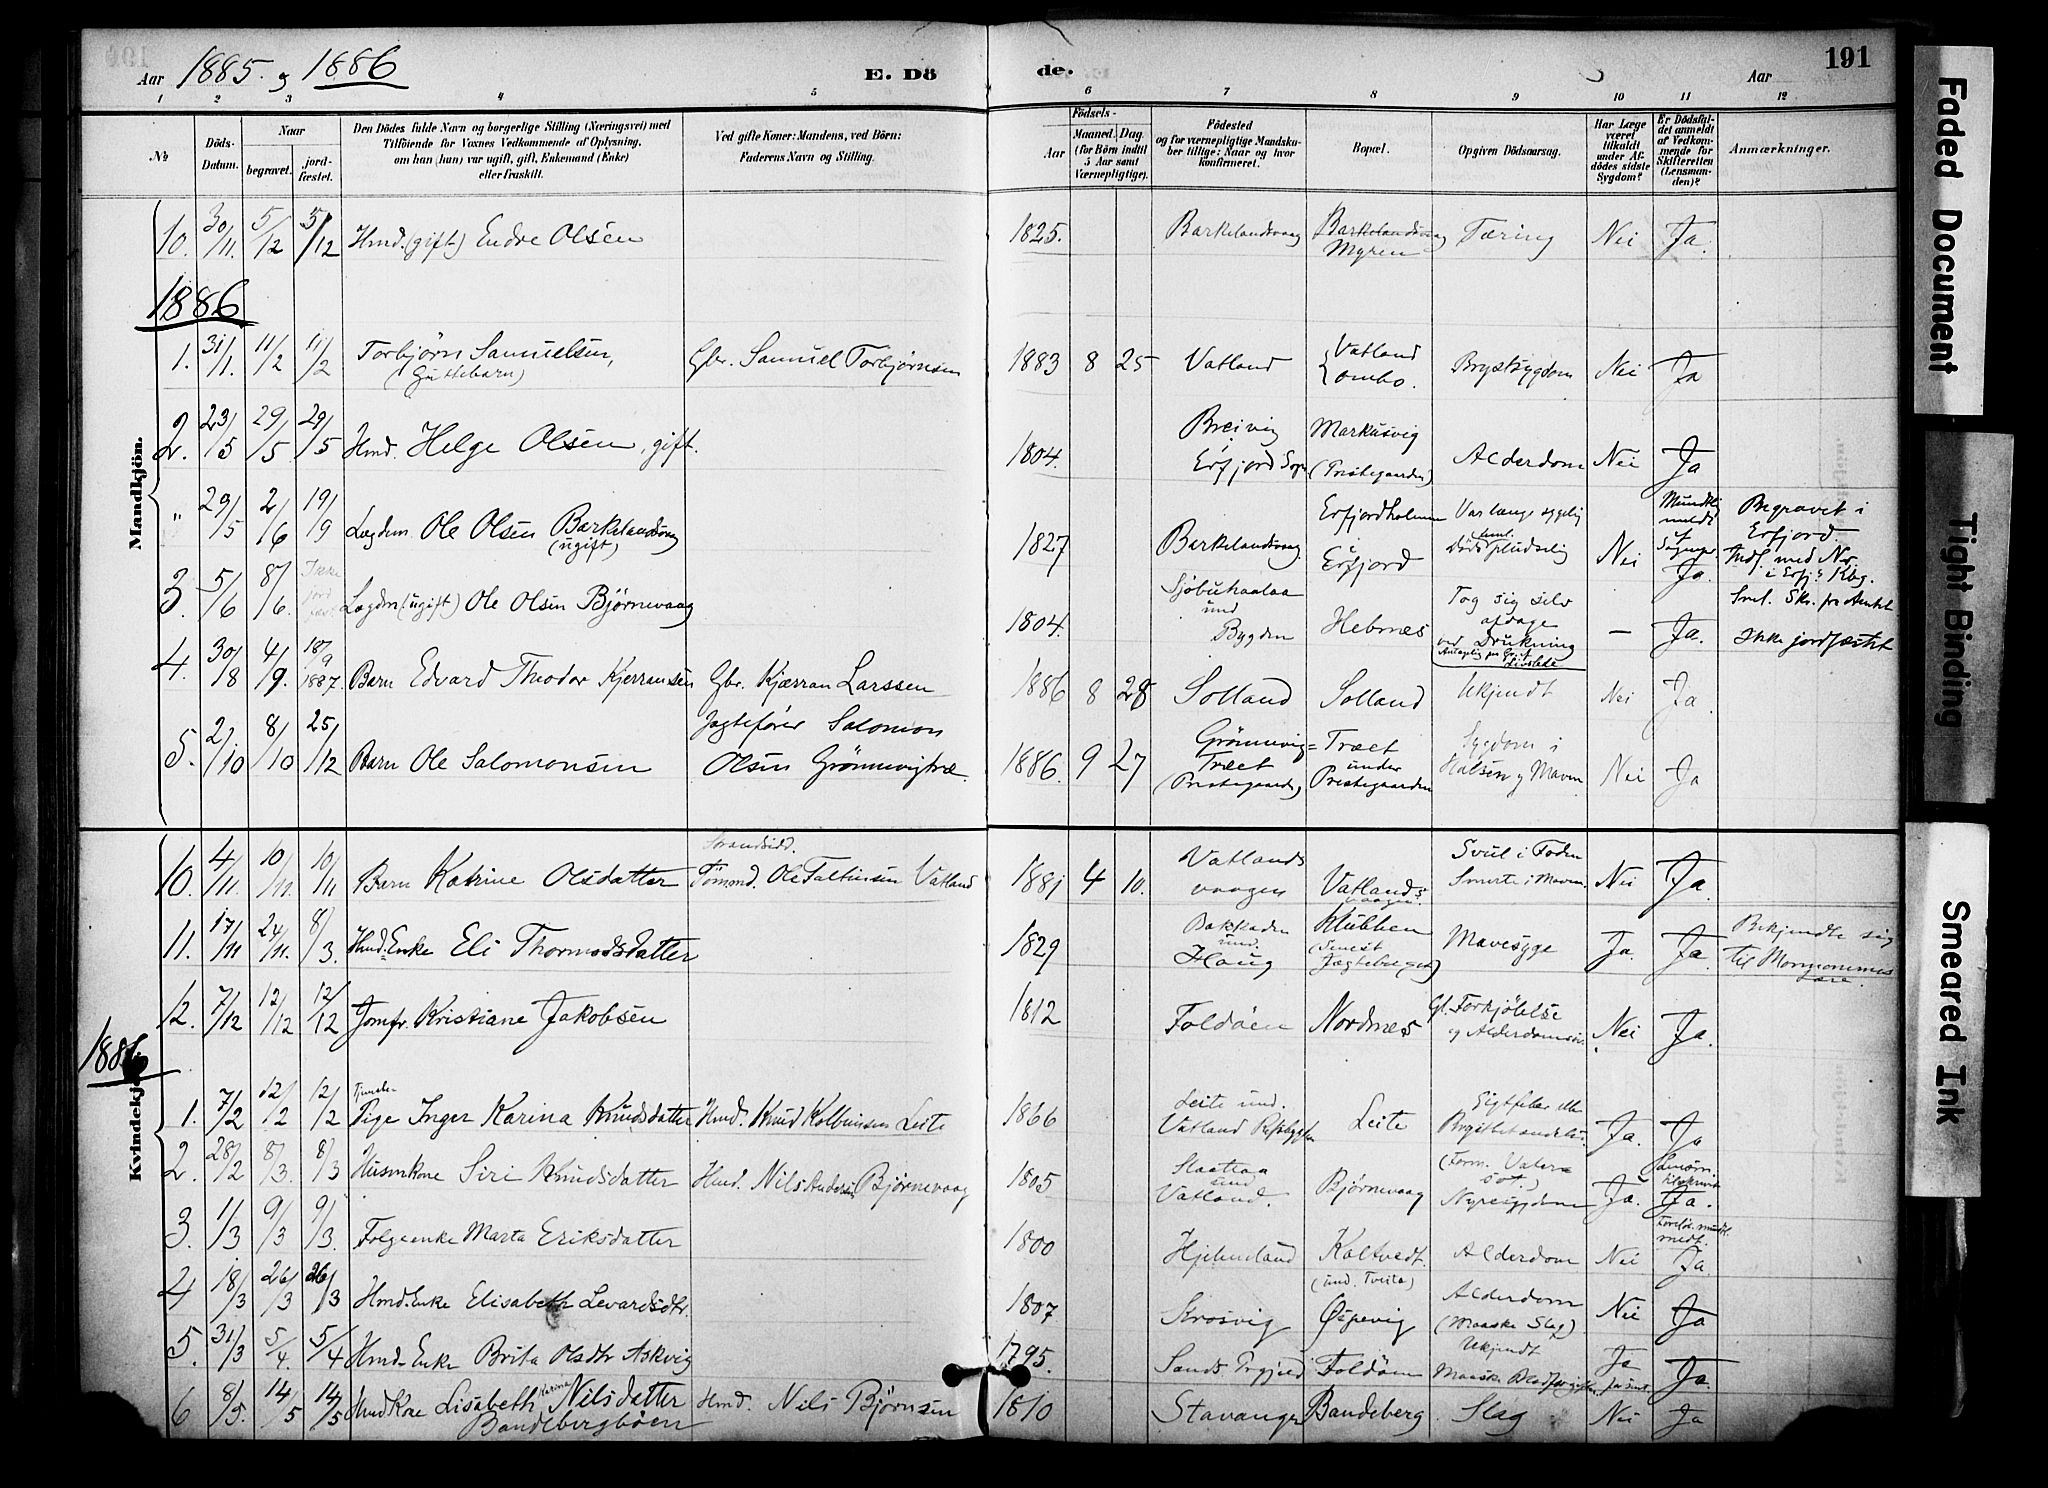 Aar 1885 og 1886
E. Dö de.
Aar
191
1 2 3 4 5 6 7 8 9 10 11 12
№
Döds-Datum.
Naar
begravet.
jord-fæstet.
Den Dödes fulde Navn og borgerlige Stilling (Næringsvei) med
Tilföiende for Voxnes Vedkommende af Oplysning,
om han (hun) var ugift, gift, Enkemand (Enke)
eller fraskilt.
Ved gifte Koner: Mandens, ved Börn:
Faderens Navn og Stilling.
Födsels-
Aar
Maaned. Dag.
(for Börn indtil
5 Aar samt
Værnepligtige).
Födested
og for værnepligtige Mandska-
ber tillige: Naar og hvor
konfirmeret.
Bopæl.
Opgiven Dödsaarsag.
Har Læge
været
tilkaldt
under Af-
dödes sidste
Sygdom?
Er Dödsfal-
det anmeldt
af Vedkom-
mende for
Skifteretten
(Lensman-
den)?
Anmærkninger.
Mandkjön.
10. 30/11. 5/12 5/12 Hmd. (gift) Endre Olsen 1825. Barkelandsvaag Barkelandsvaag Myren Tæring Nei Ja.
1886
1. 31/1. 11/2 11/2 Torbjørn Samuelsen, (Guttebarn) Gbr. Samuel Torbjørnsen 1883 8 25 Vatland Vatland Ombo. Brystsygdom Nei Ja
2. 23/5 29/5 29/5 Hmd. Helge Olsen, gift. 1804. Breivig Erfjord Sogn Markusvig (Prestegaarden) Alderdom Nei Ja
" 29/5 2/6 19/9 Lægdsm. Ole Olsen Barkelandsvaag (ugift) 1827 Barkelandsvaag Erfjordholmen i Erfjord Var længe sygelig Døde pludselig Nei Ja. Begravet i Erfjord.
3. 5/6 8/6. Ikke jord fæst. Lægdm (ugift) Ole Olsen Bjørnevaag 1804. und Bygden Hebnes Tog sig selv afdage ved Drukning — Ja. Ikke jordfæstet
4. 30/8 4/9. 18/9 1887. Barn Edvard Theodor Kjerransen Gbr. Kjærran Larssen 1886 8 28 Solland Solland Ukjendt Nei Ja.
5. 2/10 8/10 25/12 Barn Ole Salomonsen Jagtefører Salomon Olsen Grønnevigtræ. 1886. 9 27 Grønnevig= Træet (Prestegaarden) Træet under Prestegaarden Sygdom i Halsen og Maven Nei Ja
Kvindekjön.
10. 4/11. 10/11. 10/11 Barn Katrine Olsdatter Strandsidd. Tømmd. Ole Vatland 1881 4 10. Vatlands vaagen Vatlands vaagen. Svul i Foden Smerte i Maven Nei Ja.
11. 17/11 24/11. 8/3. Hmd. Enke Eli Thormodsdatter 1829 Bakkaden und. Haug Klubben Mavesyge Ja. Ja. Bekjendte sig til Mormonernes Lære.
12. 7/12 12/12 12/12 Jomfr. Kristiane Jakobsen 1812 Foldøen Nordnæs Forkjølelse og Nei Ja.
1886
1. 7/2 12/2 12/2 Tjeneste- Pige Inger Karina Knudsdatter Hmd. Knud Kolbeinsen Leite 1866 Leite und. Vatland Leite Ja. Ja
2. 28/2 8/3. 8/3 Husmkone Siri Knudsdatter Hmd. Nils Andersen Bjørnevaag 1805 und Vatland. Bjørnevaag (Form. Vatersot.) Nyresygdom Ja. Ja.
3. 1/3 9/3 9/3. Folgeenke Marta Eriksdatter 1800 Hjelmeland Kaltvedt. (und. Tveita) Alderdom Nei Ja.
4 18/3 26/3 26/3 Hmd. Enke Elisabeth Levardsdtr. 1807 Krosvig Øspevig Alderdom (Maaske Slag) Nei Ja
5. 31/3 5/4. 5/4 Hmd. Enke Brita Olsdtr Askvig 1795. Foldøen Ukjendt Maaske Blodforgiftn. Ja Ja.
6 8/5. 14/5 14/5 Hmd Kone Lisabeth Karina Nilsdatter Bandebergbøen Hmd. Nils Bjørnsen 1810 Stavanger Bandeberg Slag Nei Ja
Faded Document
Tight Binding
Smeared Ink